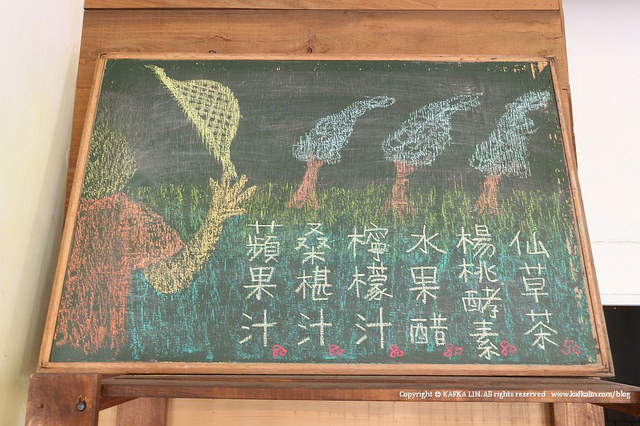 仙草茶 50
楊桃酵素 80
水果醋 80
檸檬汁 80
桑椹汁 80
蘋果汁 80
Copyright © KAFKA LIN. All rights reserved www.kafkalin.com/blog